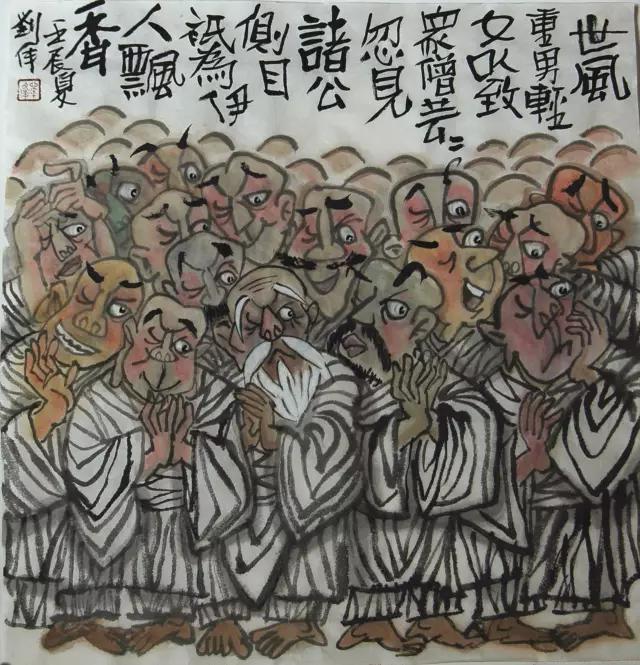 世風
重男輕
女以致
衆僧芸〻
忽見
諸公
側目
祇為伊
人飄
香
壬辰夏
劉伟